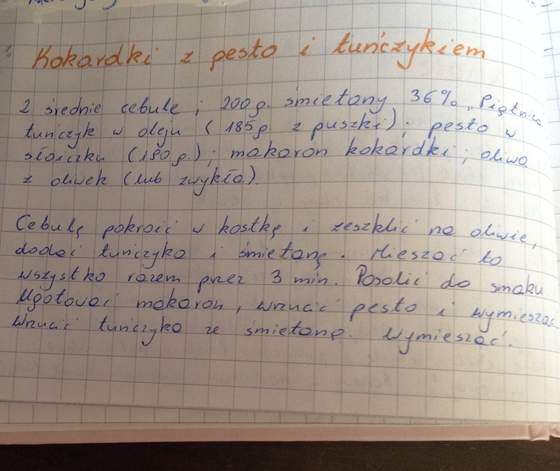 Kokardki z pesto i tuńczykiem
2 średnie cebule; 200g. śmietany 36% „Piątnica
tuńczyk w oleju (185g z puszki); pesto w
słoiczku (190g.); makaron kokardki; oliwa
z oliwek (lub zwykła)
Cebulę pokroić w kostkę i zeszklić na oliwie,
dodać tuńczyka i śmietanę. Mieszać to
wszystko razem przez 3 min. Posolić do smaku
Ugotować makaron, wrzucić pesto i wymieszać
Wrzucić tuńczyka ze śmietaną. Wymieszać.